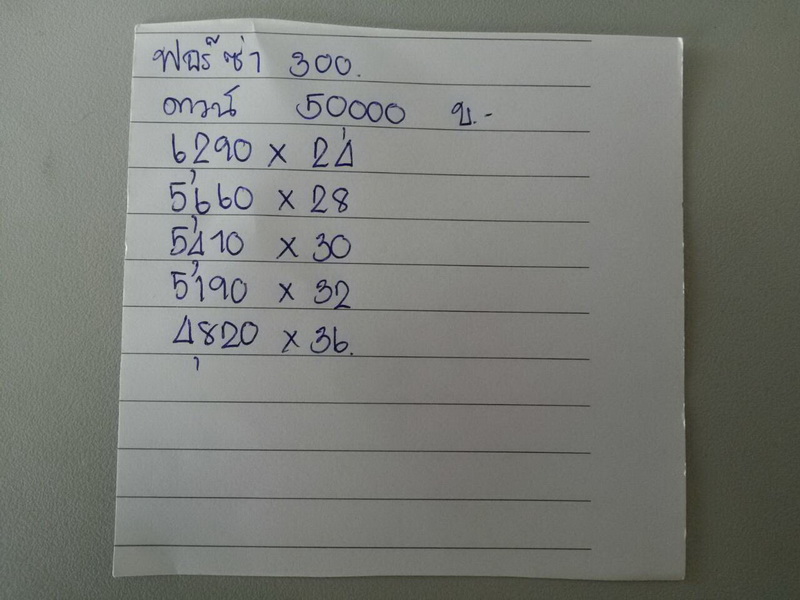 ฟอร์ซ่า 300.
ดาวน์ 50000 บ.-
6,290 x 24
5,660 x 28
5,410 x 30
5,190 x 32
4,820 x 36.